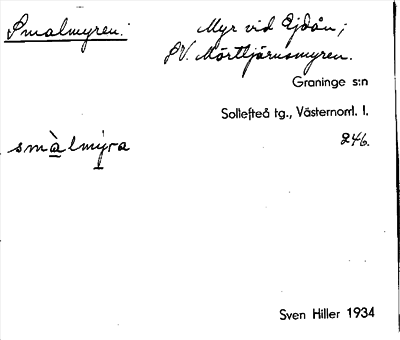 Smalmyren:
Myr vid Ejdån;
SV. Mörttjärnsmyren.
Graninge s:n
Sollefteå tg., Västernorrl. l.
smàlmýra
246.
Sven Hiller 1934